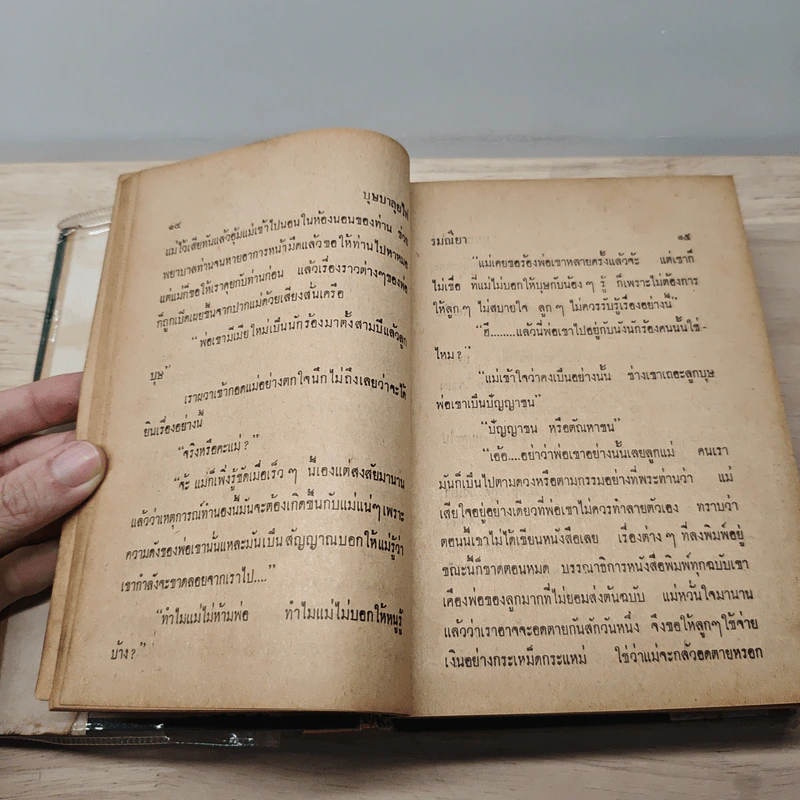 บุษบาลุยไฟ
๑๔
แม่ไว้เสียทันแล้วอุ้มแม่เข้าไปนอนในห้องนอนของท่าน ช่วย
พยาบาลท่านจนหายอาการหน้ามืดแล้วขอให้ท่านไปหาหมอ
แต่แม่ก็ขอให้เราคุยกับท่านก่อน แล้วเรื่องราวต่างๆของพ่อ
ก็ถูกเปิดเผยขึ้นจากปากแม่ด้วยเสียงสั่นเครือ
“พ่อเขามีเมียใหม่เป็นนักร้องมาตั้งสามปีแล้วลูก
บุษ”
เราผวาเข้ากอดแม่อย่างตกใจนึกไม่ถึงเลยว่าจะได้
ยินเรื่องอย่างนี้
“จริงหรือคะแม่?”
“จ้ะ แม่ก็เพิ่งรู้ชัดเมื่อเร็ว ๆ นี้เองแต่สงสัยมานาน
แล้วว่าเหตุการณ์ทำนองนี้มันจะต้องเกิดขึ้นกับแม่แน่ๆเพราะ
ความดังของพ่อเขานั่นแหละมันเป็นสัญญาณบอกให้แม่รู้ว่า
เขากำลังจะขาดลอยจากเราไป....”
“ทำไมแม่ไม่ห้ามพ่อ ทำไมแม่ไม่บอกให้หนูรู้
บ้าง?”
รมณียา
๑๕
“แม่เคยขอร้องพ่อเขาหลายครั้งแล้วจ้ะ แต่เขาก็
ไม่เชื่อ ที่แม่ไม่บอกให้บุษกับน้อง ๆ รู้ ก็เพราะไม่ต้องการ
ให้ลูก ๆ ไม่สบายใจ ลูก ๆ ไม่ควรรับรู้เรื่องอย่างนี้”
“ฮึ........แล้วนี่พ่อเขาไปอยู่กับนังนักร้องคนนั้นใช่-
ไหม?”
“แม่เข้าใจว่าคงเป็นอย่างนั้น ช่างเขาเถอะลูกบุษ
พ่อเขาเป็นปัญญาชน”
“ปัญญาชน หรือตัณหาชน”
“เอ้อ....อย่าว่าพ่อเขาอย่างนั้นเลยลูกแม่ คนเรา
มันก็เป็นไปตามดวงหรือตามกรรมอย่างที่พระท่านว่า แม่
เสียใจอยู่อย่างเดียวที่พ่อเขาไม่ควรทำลายตัวเอง ทราบว่า
ตอนนี้เขาไม่ได้เขียนหนังสือเลย เรื่องต่าง ๆ ที่ลงพิมพ์อยู่
ขณะนี้ก็ขาดตอนหมด บรรณาธิการหนังสือพิมพ์ทุกฉบับเขา
เคืองพ่อของลูกมากที่ไม่ยอมส่งต้นฉบับ แม่หวั่นใจมานาน
แล้วว่าเราอาจจะอดตายกันสักวันหนึ่ง จึงขอให้ลูกๆใช้จ่าย
เงินอย่างกระเหม็ดกระแหม่ ใช่ว่าแม่จะกลัวอดตายหรอก